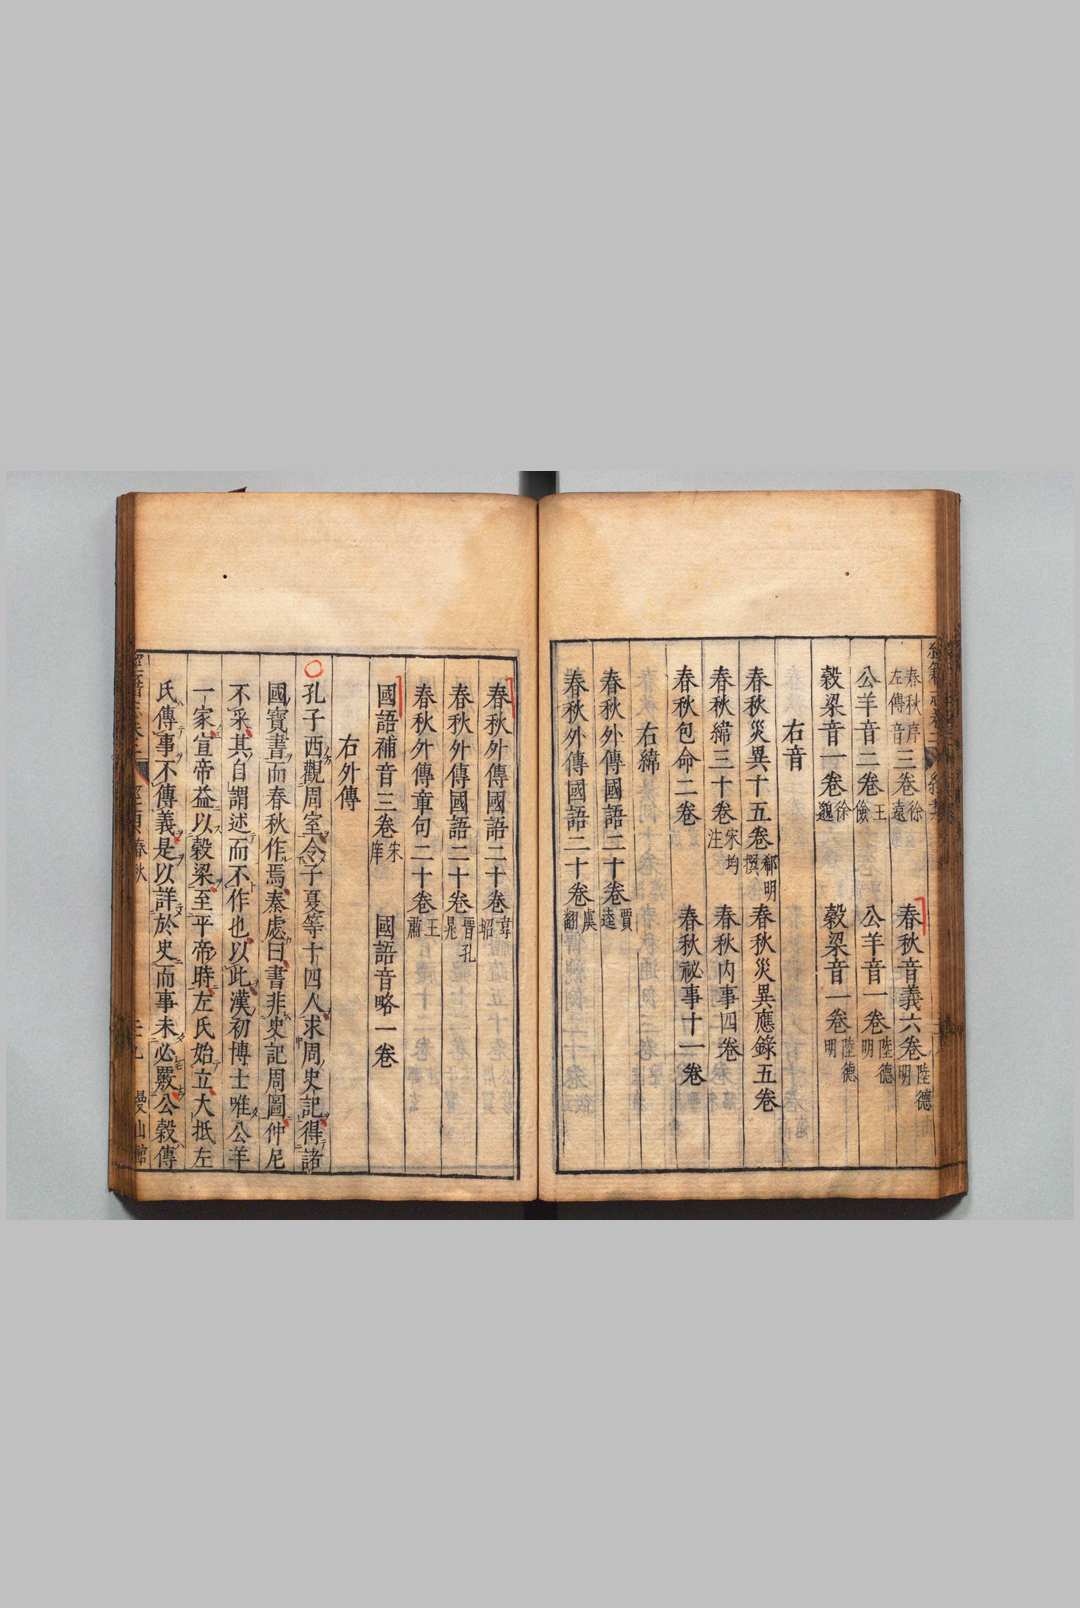 春秋序左傳音三卷徐邈 春秋音義六卷陸德明
公羊音二卷王儉 公羊音一卷陸德明
穀梁音一卷徐邈 穀梁音一卷陸德明
右音
春秋災異十五卷郗明撰 春秋災異應錄五卷
春秋緯三十卷宋均注 春秋內事四卷
春秋包命二卷 春秋祕事十一卷
右緯
春秋外傳國語二十卷賈逵
春秋外傳國語二十卷虞翻
春秋外傳國語二十卷韋昭
春秋外傳國語二十卷晉孔晁
春秋外傳章句二十卷王肅
國語補音三卷宋庠 國語音略一卷
右外傳
孔子西觀周室令子夏等十四人求周史記得諸
國寶書而春秋作焉秦處曰書非史記周圖仲尼
不采其自謂述而不作也以此漢初博士唯公羊
一家宣帝益以穀梁至平帝時左氏始立大抵左
氏傳事不傳義是以詳於史而事未必覈公穀傳
經類 春秋